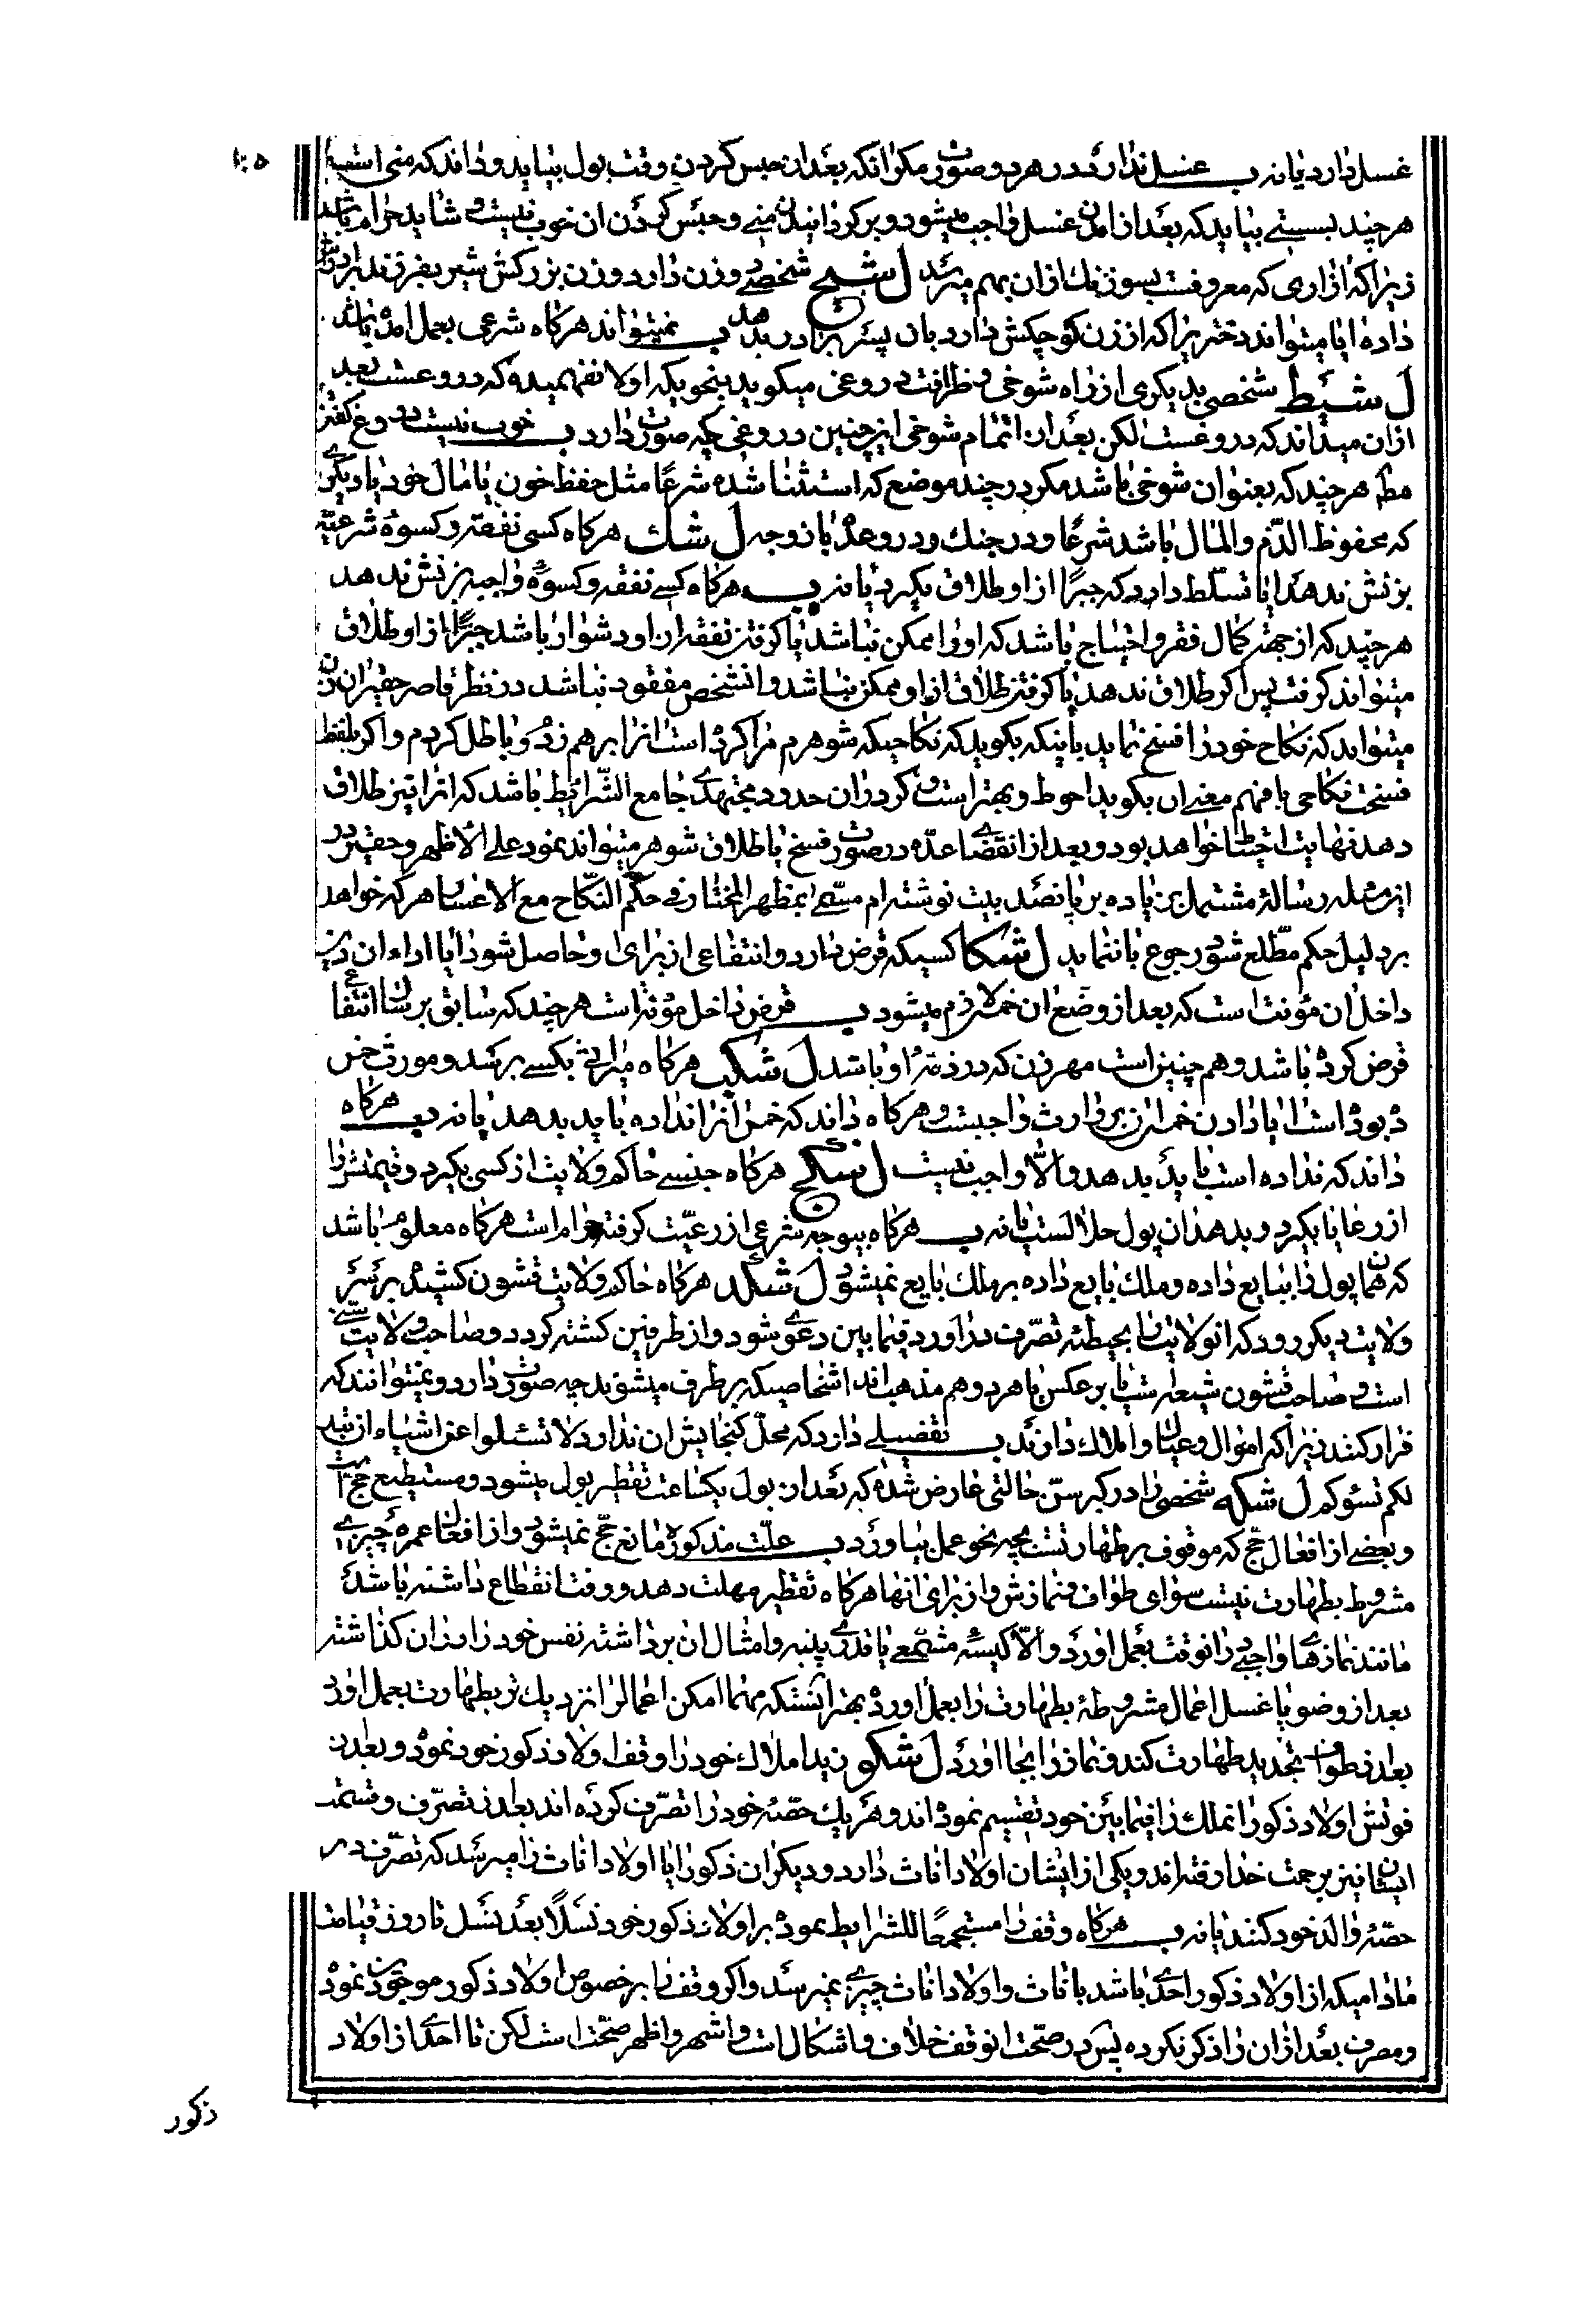 ۱۰۵
غسل دارد یا نه ب غسل ندارد در هر دو صورت مکر انکه بعد از حبس کردن وقت بول بیاید و داند که منی است
هر چند بسستی بیاید که بعد از امدن غسل واجب میشود و بر کردانیدن منی و حبس کردن ان خوب نیست و شاید حرام باشد
زیرا که ازاری که معروفست بسوزنک از ان بهم میرسد ل شیح شخصی دو زن دارد و زن بزرکش شیر بفرزند برادرش
داده ایا میتواند دختریرا که از زن کوچکش دارد بان پسر برادر بدهد ب نمیتواند هرکاه شرعی بعمل امده باشد
ل شیط شخصی بدیکری از راه شوخی و ظرافت دروغی میکوید بنحویکه اولا نفهمیده که دروغست بعد
از ان میداند که دروغست لکن بعد از اتمام شوخی این چنین دروغی چه صورت دارد ب خوب نیست دروغ کفتن
مطم هر چند که بعنوان شوخی باشد مکر در چند موضع که استثنا شده شرعًا مثل حفظ خون یا مال خود یا دیکری
که محفوظ الدّم و المال باشد شرعًا و در جنک و در وعدۀ با زوجه ل شک هرکاه کسی نفقه و کسوۀ شرعیّه
بزنش ندهد ایا تسلّط دارد که جبرًا از او طلاق بکیرد یا نه ب هرکاه کسی نفقه و کسوۀ واجبه بزنش ندهد
هر چند که از جهة کمال فقر و احتیاج باشد که او را ممکن نباشد یا کرفتن نفقه از او دشوار باشد جبرًا از او طلاق
میتواند کرفت پس اکر طلاق ندهد یا کرفتن طلاق از او ممکن نباشد و انشخص مفقود نباشد در نظر قاصر حقیر ان زن
میتواند که نکاح خود را فسخ نماید باینکه بکوید که نکاحیکه شوهرم مرا کرده است انرا بر هم زدم و باطل کردم و اکر بلفظ
فسخت نکاحی با فهم معنی ان بکوید احوط و بهتر است و اکر در ان حدود مجتهدی جامع الشّرائط باشد که انرا نیز طلاق
دهد نهایت احتیاط خواهد بود و بعد از انقضای عدّه در صورت فسخ یا طلاق شوهر میتواند نمود علی الاظهر و حقیر در
این مسئله رسالۀ مشتمل بر زیاده بر پانصد بیت نوشته ام مسمّی بمظهر المختار فی حکم النّکاح مع الاعسار هر که خواهد
بر دلیل حکم مطّلع شود رجوع بان نماید ل شکا کسیکه قرض دارد و انتفاعی از برای او حاصل شود ایا اداء ان دین
داخل ان مؤنت است که بعد از وضع ان خمس لازم میشود ب قرض داخل مؤنه است هر چند که سابق بر سال انتفاع
قرض کرده باشد و هم چنین است مهر زن که در ذمّۀ او باشد ل شکب هرکاه میراثی بکسی برسد و مورث خمس
ده بوده است ایا دادن خمس ان بر وارث واجبست و هرکاه داند که خمس انرا نداده باید بدهد یا نه ب هرکاه
داند که نداده است باید بدهد و الّا واجب نیست ل شکج هرکاه جنسی حاکم ولایت از کسی بکیرد و قیمتش را
از رعایا بکیرد و بدهد ان پول حلالست یا نه ب هرکاه بیوجه شرعی از رعیّت کرفته حرام است هرکاه معلوم باشد
که همان پول را ببایع داده و ملک بایع داده بر ملک بایع نمیشود ل شکد هرکاه حاکم ولایت قشون کشیده بر سر
ولایت دیکر رود که انولایت را بحیطۀ تصرّف در اورد و فیما بین دعوی شود و از طرفین کشته کردد و صاحب ولایت سنّی
است و صاحب قشون شیعه است یا بر عکس یا هر دو هم مذهب اند اشخاصیکه بر طرف میشوند چه صورت دارد و نمیتوانند که
فرار کنند زیرا که اموال و عیال و املاک دارند ب تفصیلی دارد که محلّ کنجایش ان ندارد لا تسئلوا عن اشیاء ان تبد
لکم تسؤکم ل شکه شخصی را در کبر سنّ حالتی عارض شده که بعد از بول یکساعت تقطیر بول میشود و مستطیع حج است
و بعضی از افعال حجّ که موقوف بر طهارتست بچه نحو عمل بیاورد ب علّت مذکوره مانع حجّ نمیشود و از افعال عمره چیزی
مشروط بطهارت نیست سوای طواف و نمازش و از برای انها هرکاه تقطیر مهلت دهد و وقت انقطاع داشته باشد
مانند نمازهای واجبی در انوقت بعمل اورد و الّا کیسۀ مشمّعی با قدری پنبه و امثال ان برداشته نفس خود را در ان کذاشته
بعد از وضو یا غسل اعمال مشروطۀ بطهارت را بعمل اورد و بهتر انستکه مهما امکن اعمال را نزدیک تر بطهارت بعمل اورد
بعد از طواف تجدید طهارت کند و نماز را بجا اورد ل شکو زید املاک خود را وقف اولاد ذکور خود نموده و بعد از
فوتش اولاد ذکور انملک را فیما بین خود تقسیم نموده اند و هر یک حصّۀ خود را تصرّف کرده اند بعد از تصرّف و قسمت
ایشان نیز برحمت خدا رفته اند و یکی از ایشان اولاد اناث دارد و دیکران ذکور ایا اولاد اناث را میرسد که تصرّف در
حصّۀ والد خود کنند یا نه ب هرکاه وقف را مستجمعًا للشرایط نموده بر اولاد ذکور خود نسلًا بعد نسل تا روز قیامت
مادامیکه از اولاد ذکور احدی باشد باناث و اولاد اناث چیزی نمیرسد و اکر وقف را بر خصوص اولاد ذکور موجودین نموده
و مصرف بعد از ان را ذکر نکرده پس در صحّت انوقف خلاف و اشکال است و اشهر و اظهر صحّت است لکن تا احدی از اولاد
ذکور